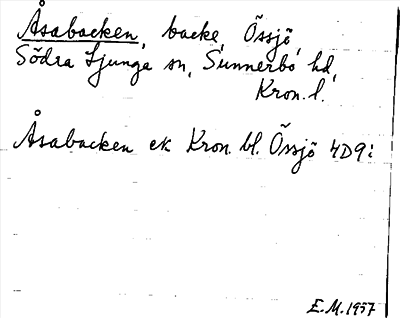 Åsabacken, backe, Össjö,
Södra Ljunga sn, Sunnerbo hd,
Kron. l.
Åsabacken ek Kron. bl. Össjö 4D9i
E.M. 1957